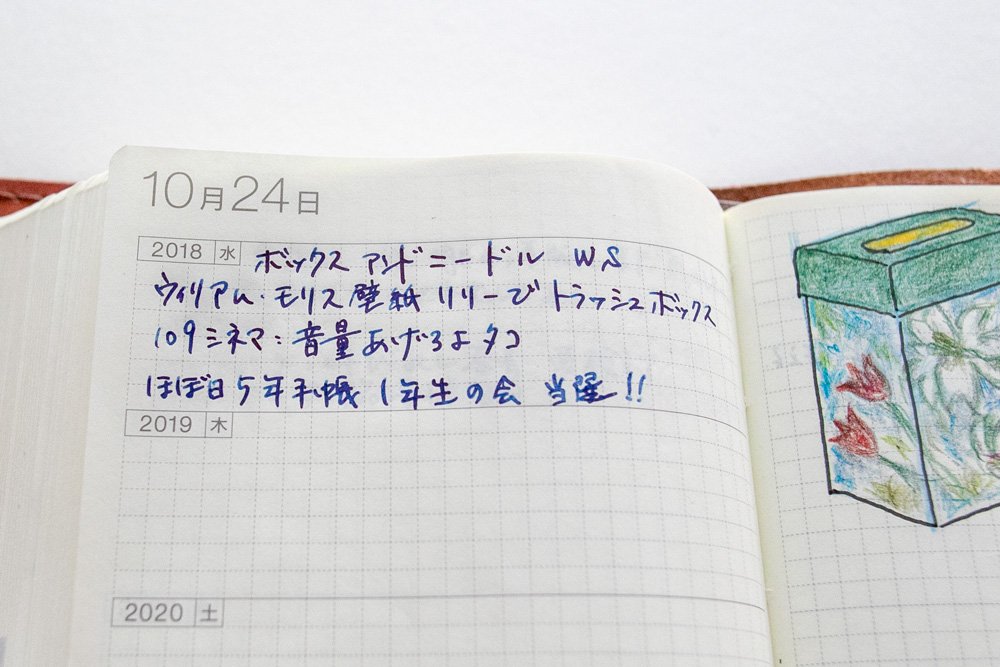 10月24日
2018 水 ボックス アンド ニードル WS
ウィリアム・モリス壁紙 リリーで トラッシュボックス
109シネマ：音量あげろよタコ
ほぼ日5年手帳 1年生の会 当選!!
2019 木
2020 土